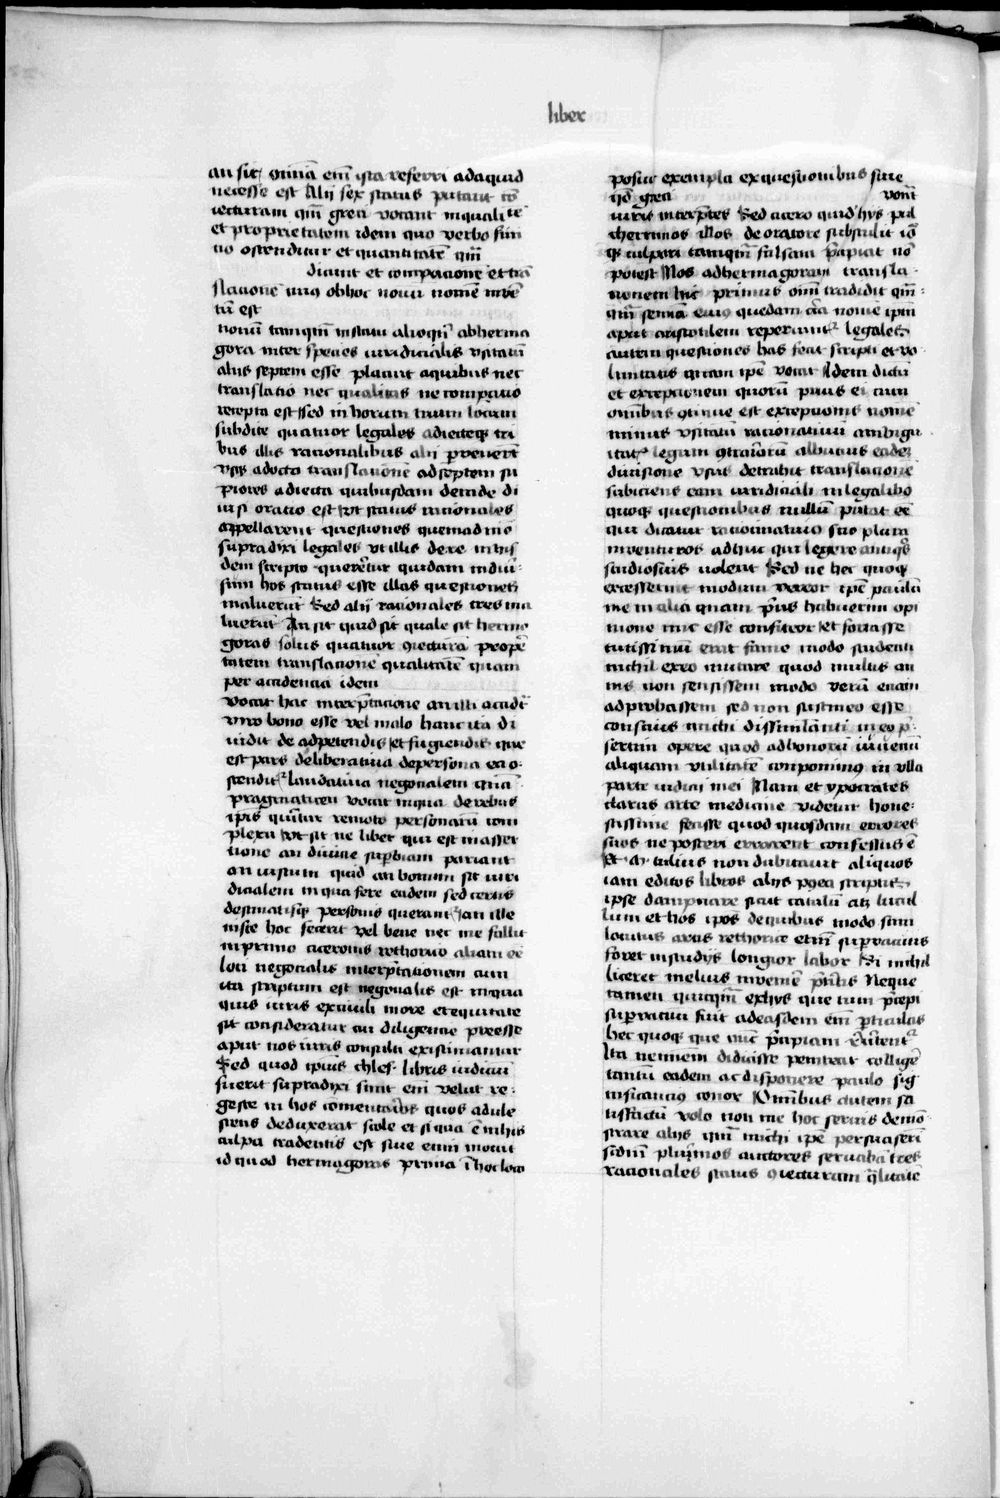 liber
an sit omnia em̄ ista referri ad aquid
necesse est Alii sex status putant cō
iecturam qm̄ greci vocant inqualitē
et proprietatem idem quo verbo fini
tio ostenditur et quantitatē qm̄
dicunt et comparacionē et trā
slationē cuiꝯ ob hoc nouū nomē inuē
tū est
nouū tamqm̄ in statu alioqn̄ ab herma
gora inter species iuridicialis vsitatū
aliis septem esse placuit a quibus nec
translatio nec qualitas ne comparatio
recepta est sed in horum trium locum
subdite quatuor legales adiecteqꝫ tri
bus illis racionalibus alii peruenerūt
vsqꝫ ad octo translacionē ad septem su
piores adiecta quibusdam deinde di
uisi oratio est vt status racionales
appellarent questiones quemadmō
supradixi legales vt illis de re in hiis
dem scripto quereret̄ur quidam in diuer
sum hos status esse illas questiones
maluerūt Sed alii racionales tres ma
luerūt An sit quid sit quale sit hermo
goras solus quatuor ꝯiecturā propē
tatem translationē qualitatē quam
per accidencia idem
vocat hac interp̄tatione an illi accidt̄
viro bono esse vel malo hanc ita di
uidit de adpetendis et fugiendis que
est pars deliberatiua de persona ea o
stendit̄ laudatiua negocialem qm̄
pragmaticen vocat in qua de rebus
ip̄is querit̄ur remoto personarū com
plexu vt sit ne liber qui est in asser
tione an diuicie supbiam pariant
an iustum quid an bonum sit iuri
dicialem in qua fere eadem sed certis
destinatisqꝫ personis querant̄ an ille
iuste hoc fecerit vel bene nec me fallit
in primo ciceronis rethorico aliam eē
loci negocialis interp̄tationem cum
ita scriptum est negocialis est in qua
quis iuris ex ciuili more et equitate
sit consideratur cui diligencie preesse
aput nos iuris consulti existimantur
Sed quod ipius hles libris iudiciū
fuerit supradixi sunt em̄ velut re
geste in hos cōmentarios quos adule
scens deduxerat scole et si qua ē in hiis
culpa tradentis est siue eum mouit
id quod hermagoras prima ī hoc loco
posuit exempla ex questionibus siue
qd̄ greci vocāt
iuris interp̄tes Sed cicero quid hiis pul
cherrimos illos de oratore substulit iō
qꝫ culpari tamqm̄ falsam p̄cipiat nō
potest Nos ad hermagoram transla
tionem hic primus oim̄ tradidit qm̄
qm̄ semina eiuꝯ quedam cit̄a nomē ipm̄
aput aristotilem reperiunt̄ legales
autem questiones has fecit scripti et vo
luntatis qm̄ ip̄e vocat Idem dictū
et exceptionem quorū prius ei cum
omnibus cōmune est exceptionis nomē
minus vsitatū racionatiuū ambigu
itat̄ legum ꝯtrariarū albucius eadē
diuisione vsus detrahit translatione
subiciens eam iuridiciali in legalibꝯ
quoqꝫ questionibus nullum putat eē
qui dicatur raciocinatiuus scio plura
inuenturos adhuc qui legere antiqꝯs
studiosius volent Sed ne hec quoqꝫ
excesserint modum vereor ip̄e paulū
me in alia quam prius habuerim opi
nione nunc esse confiteor et fortasse
tutissimū erat fame modo studenti
nichil ex eo mutare quod multis an
nis non sensissem modo verū eciam
adprobassem sed non sustineo esse
conscius michi dissimulanti in eo p̄
sertim opere quod ad bonorū iuuenū
aliquam vtilitatē componimus in vlla
parte iudicii mei Nam et ypocrates
clarus arte medicine videtur hone
stissime fecisse quod quosdam errores
suos ne posteri errarent confessus ē
Et m tulius non dubitauit aliquos
iam editos libros aliis postea scriptis
ipse dampnare sicut catulū atqꝫ lucul
lum et hos ipos de quibus modo sum
locutus artis rethorice etenī supuacuus
foret in studiis longior labor si nichil
liceret melius inuenire p̄teritis Neque
tamen quicqm̄ ex hiis que tum p̄cepi
supuacuū fuit ad easdem em̄ pticulas
hec quoqꝫ que nūc p̄cipiam reuertent̄
Ita neminem didicisse peniteat colligē
tantū eadem ac disponere paulo sig
nificancius conor Omnibus autem sa
tisfactū volo non me hoc serius demō
strare aliis qm̄ michi ip̄e persuaserī
secūm plurimos auctores seruabā tres
racionales status ꝯiecturam qlitatē